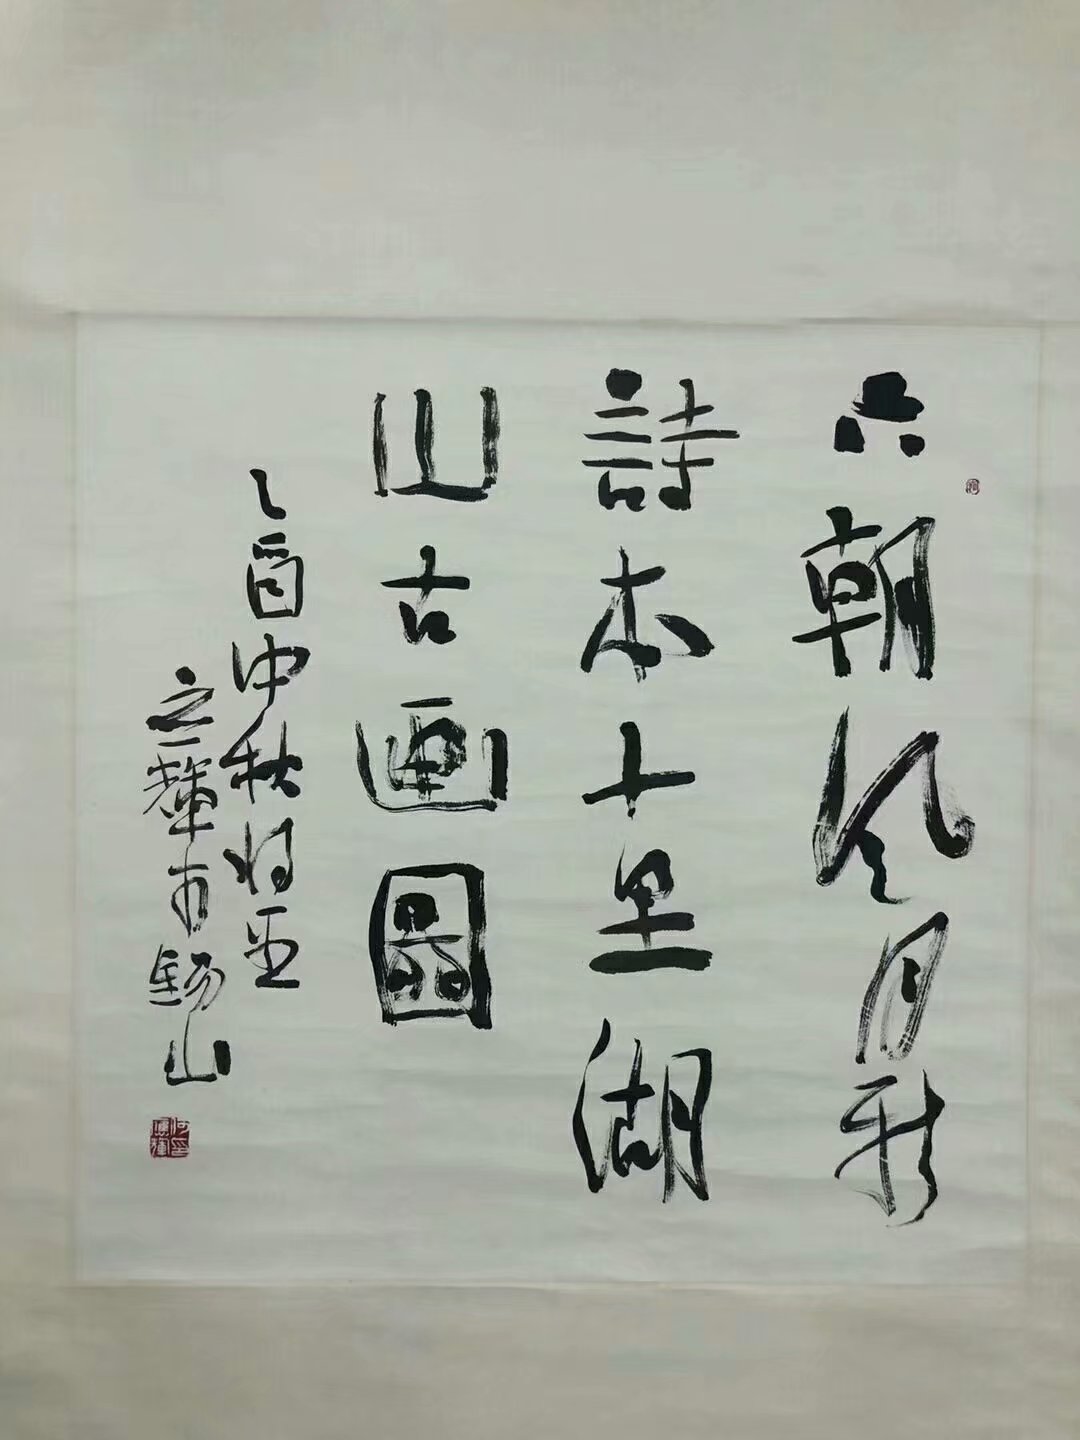 六朝風月新
詩本十里湖
山古画圖
乙酉中秋將至
之輝於錫山